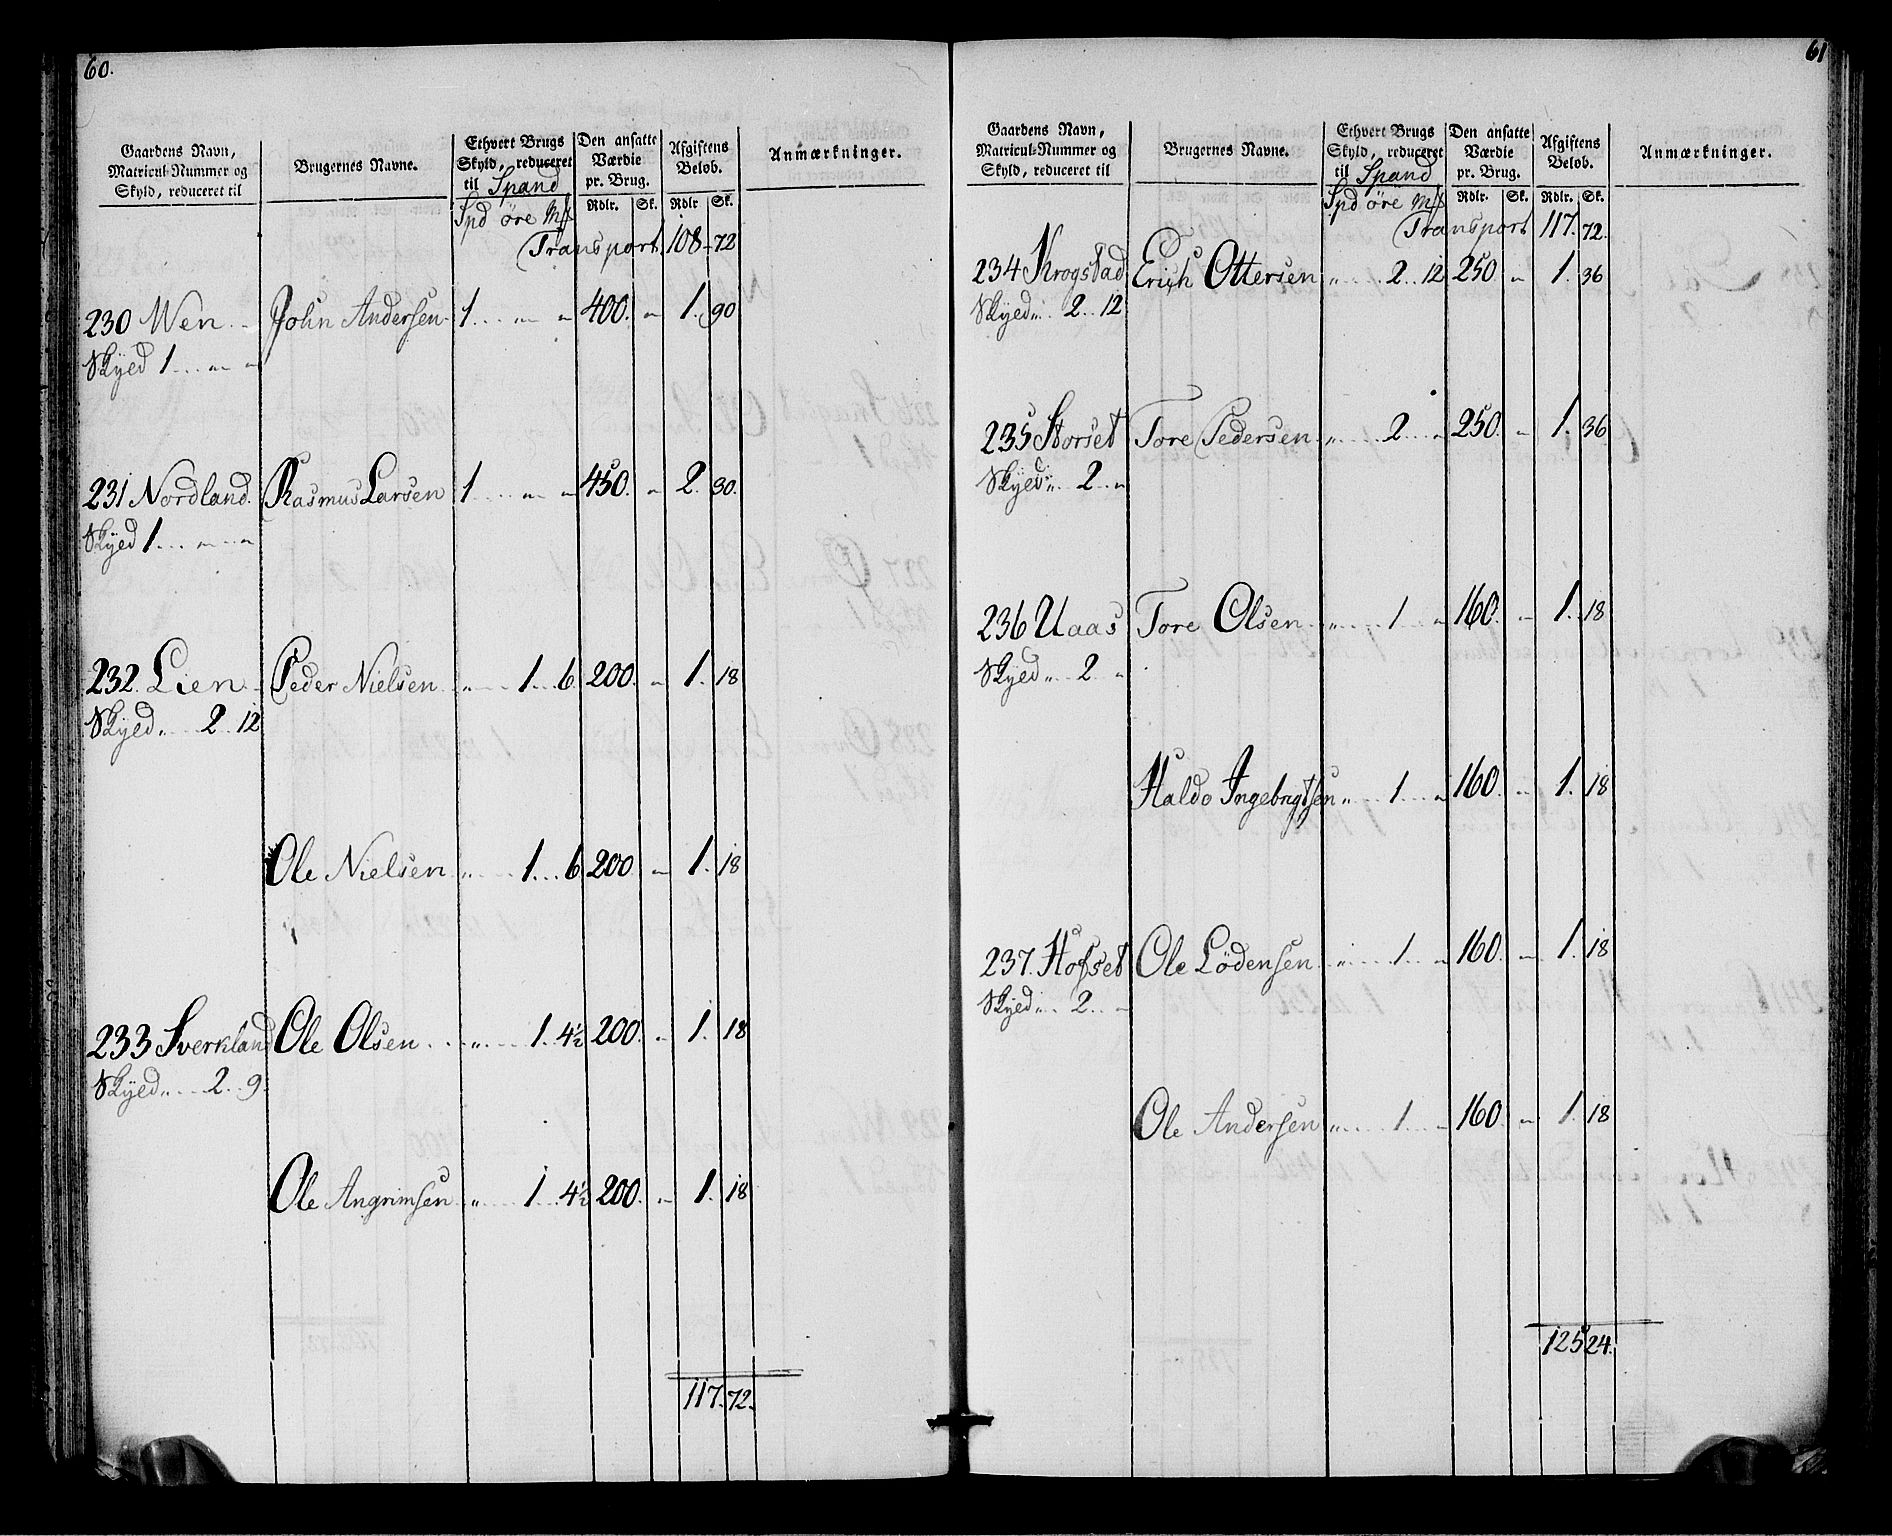 60.
Gaardens Navn, Matricul-Nummer og Skyld, reduceret til | Brugernes Navne. | Ethvert Brugs Skyld, reduceret til Spand | Den ansatte Værdie pr. Brug. | Afgiftens Beløb. | Anmærkninger.
Spd øre Mk | Rdlr. Sk. | Rdlr Sk.
Transport 108 - 72
230 Wen John Andersen 1 . . . „ „ 400. „ 1. 90
Skyed 1 . . . „ „
231 Nordland Rasmus Larsen 1 . . . „ „ 450. „ 2. 30.
Skyed 1 . . . „ „
232. Lien Peder Nielsen „ 1 . . 6 200. „ 1. 18
Skyed „ 2 12
Ole Nielsen „ 1 . . 6 200 „ 1. 18
233 Sverkland Ole Olsen „ 1. 4½ 200. „ 1. 18
Skyed „ 2 9.
Ole Angrimsen „ 1 4½ 200. „ 1. 18
117. 72.
61
Gaardens Navn, Matricul-Nummer og Skyld, reduceret til | Brugernes Navne. | Ethvert Brugs Skyld, reduceret til Spand | Den ansatte Værdie pr. Brug. | Afgiftens Beløb. | Anmærkninger.
Spd øre Mk | Rdlr. Sk. | Rdlr. Sk.
Transport 117. 72.
234 Krogstad Erich Ottersen „ 2 . . 12 250 „ 1. 36
Skyed „ 2 . . 12
235 Storset Tore Pedersen „ 2 . . „ 250. „ 1. 36
Skyed „ 2 . . „
236 Uaas Tore Olsen „ 1 „ 160. „ 1. 18
Skyed „ 2 „
Haldo Ingebrigtsen „ 1 . . „ 160. „ 1. 18
237. Hofset Ole Lødensen „ 1 . . „ 160. „ 1. 18
Skyed „ 2 . . „
Ole Andersen „ 1 . . „ 160. „ 1. 18
125 24.